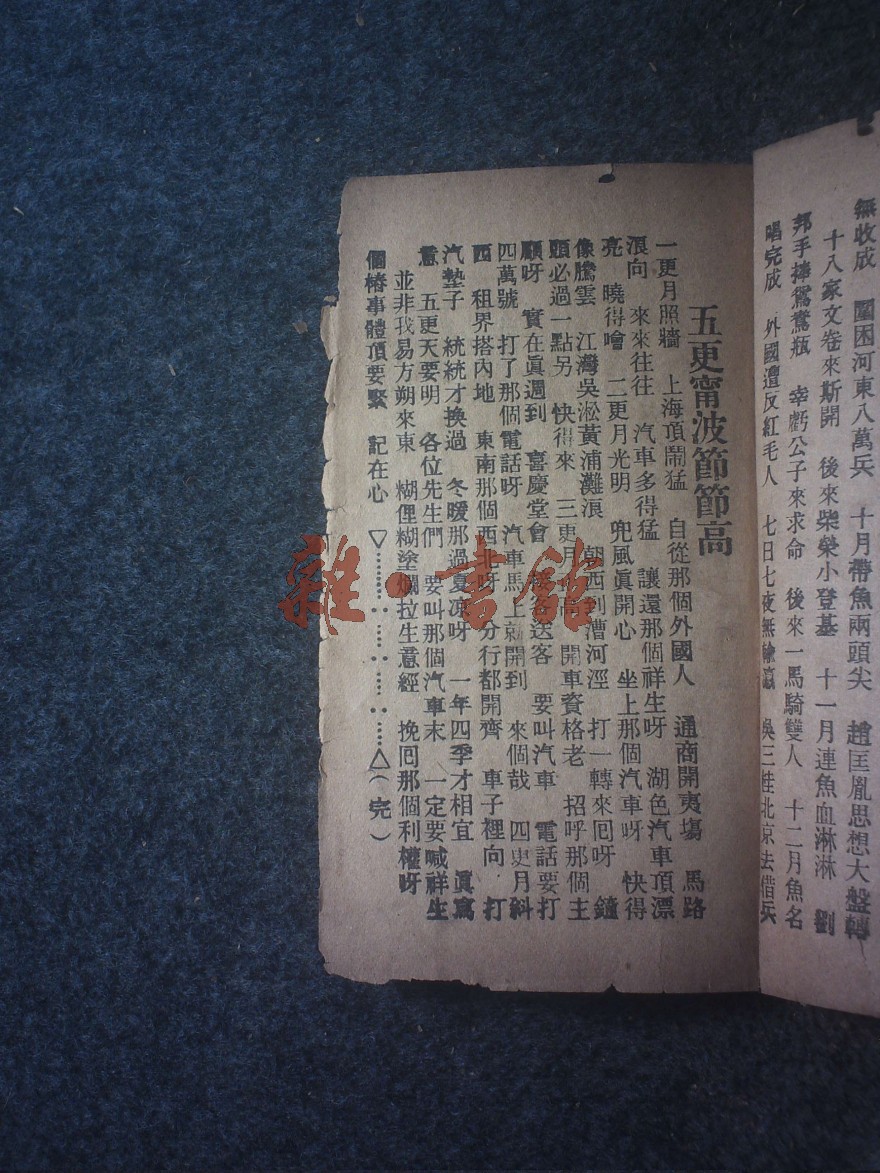 無收成　圍困河東八萬兵　十月帶魚兩頭尖　趙匡胤思想大盤轉
十八家文卷來斯開　後來柴榮小登基　十一月連魚血淋淋　劉
邦手捧鴛鴦瓶　幸虧公子來求命　後來一馬騎雙人　十二月魚名
唱完成　外國遭反紅毛人　七日七夜無輸贏　吳三桂北京去借兵
五更甯波節節高
一更月照牆　上海頂鬧猛　自從那個外國人　通商開夷塲　馬路
浪向　來來往往　汽車多得猛　讓還那個祥生呀　湖色汽車頂漂
亮　曉得噲　二更月光明　兜風眞開心　坐上那個汽車呀　快得
像騰雲　江灣吳淞黃浦灘浪　朝西到漕河涇　打一轉來回呀　鐘
頭必過一點另　快得來　三更月　高　開車資格老　招呼那個主
顧呀　實在眞週到　喜慶堂會　接客送客　要叫汽車　電話要打
四萬號　打了那個電話呀　汽車馬上就開到　來個哉　四更月斜
西　租界搭內地　東南那個西北呀　分行都開齊　車子裡向　打
汽墊子　統統才換過　冬暖那過夏凉呀　一年四季才相宜　眞寫
意　五更天要明　各位先生們　要叫那個汽車末　一定要喊祥生
並非我易方朔來東　糊俚糊塗爛拉生意經　挽囘那個利權呀
個樁事體頂要緊　記在心　▽⋯⋯⋯⋯△（完）
雜·書館